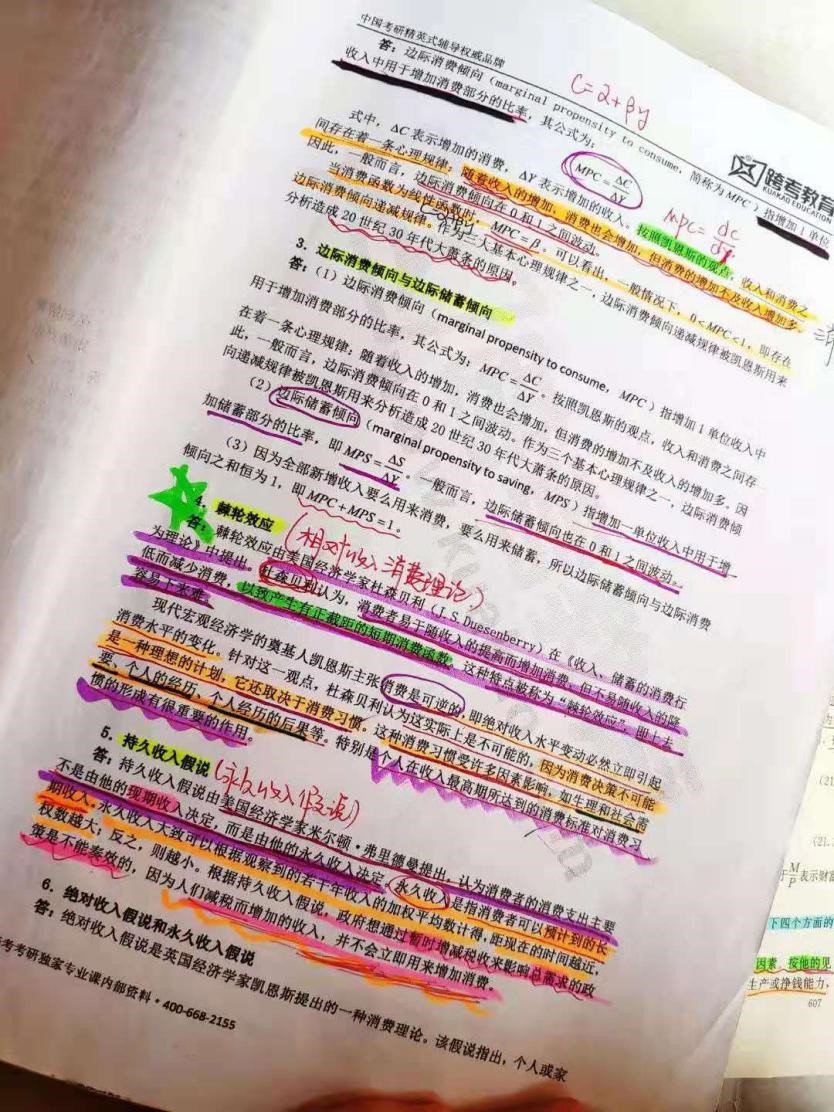 中国考研精英式辅导权威品牌
跨考教育
KUAKAO EDUCATION
答：边际消费倾向（marginal propensity to consume，简称为 MPC）指增加 1 单位
收入中用于增加消费部分的比率，其公式为：
C=α+βy
MPC = ΔC/ΔY
式中，ΔC 表示增加的消费，ΔY 表示增加的收入。按照凯恩斯的观点，收入和消费之
MPC= dc/dy
间存在着一条心理规律：随着收入的增加，消费也会增加，但消费的增加不及收入增加多。
因此，一般而言，边际消费倾向在 0 和 1 之间波动。
当消费函数为线性函数时，MPC=β。可以看出，一般情况下，0<MPC<1，即存在
边际消费倾向递减规律。作为三大基本心理规律之一，边际消费倾向递减规律被凯恩斯用来
分析造成 20 世纪 30 年代大萧条的原因。
3. 边际消费倾向与边际储蓄倾向
答：（1）边际消费倾向（marginal propensity to consume，MPC）指增加 1 单位收入中
用于增加消费部分的比率，其公式为：MPC = ΔC/ΔY。按照凯恩斯的观点，收入和消费之间存
在着一条心理规律：随着收入的增加，消费也会增加，但消费的增加不及收入的增加多。因
此，一般而言，边际消费倾向在 0 和 1 之间波动。作为三个基本心理规律之一，边际消费倾
向递减规律被凯恩斯用来分析造成 20 世纪 30 年代大萧条的原因。
（2）边际储蓄倾向（marginal propensity to saving，MPS）指增加一单位收入中用于增
加储蓄部分的比率，即 MPS = ΔS/ΔY。一般而言，边际储蓄倾向也在 0 和 1 之间波动。
（3）因为全部新增收入要么用来消费，要么用来储蓄，所以边际储蓄倾向与边际消费
倾向之和恒为 1，即 MPC+MPS=1。
4. 棘轮效应（相对收入消费理论）
答：棘轮效应由美国经济学家杜森贝利（J.S.Duesenberry）在《收入、储蓄的消费行
为理论》中提出。杜森贝利认为，消费者易于随收入的提高而增加消费，但不易随收入的降
低而减少消费，以致产生有正截距的短期消费函数。这种特点被称为“棘轮效应”，即上去
容易下来难。
现代宏观经济学的奠基人凯恩斯主张消费是可逆的，即绝对收入水平变动必然立即引起
消费水平的变化。针对这一观点，杜森贝利认为这实际上是不可能的，因为消费决策不可能
是一种理想的计划，它还取决于消费习惯。这种消费习惯受许多因素影响，如生理和社会需
要、个人的经历、个人经历的后果等。特别是个人在收入最高期所达到的消费标准对消费习
惯的形成有很重要的作用。
5. 持久收入假说（永久收入假说）
答：持久收入假说由美国经济学家米尔顿·弗里德曼提出，认为消费者的消费支出主要
不是由他的现期收入决定，而是由他的永久收入决定。永久收入是指消费者可以预计到的长
期收入。永久收入大致可以根据观察到的若干年收入的加权平均数计得，距现在的时间越近，
权数越大；反之，则越小。根据持久收入假说，政府想通过暂时增减税收来影响总需求的政
策是不能奏效的，因为人们减税而增加的收入，并不会立即用来增加消费。
6. 绝对收入假说和永久收入假说
答：绝对收入假说是英国经济学家凯恩斯提出的一种消费理论。该假说指出，个人或家
考考研独家专业课内部资料·400-668-2155
（21
（21.
于 M/P 表示财富
下四个方面的
因素，按他的见
生产或挣钱能力，
607